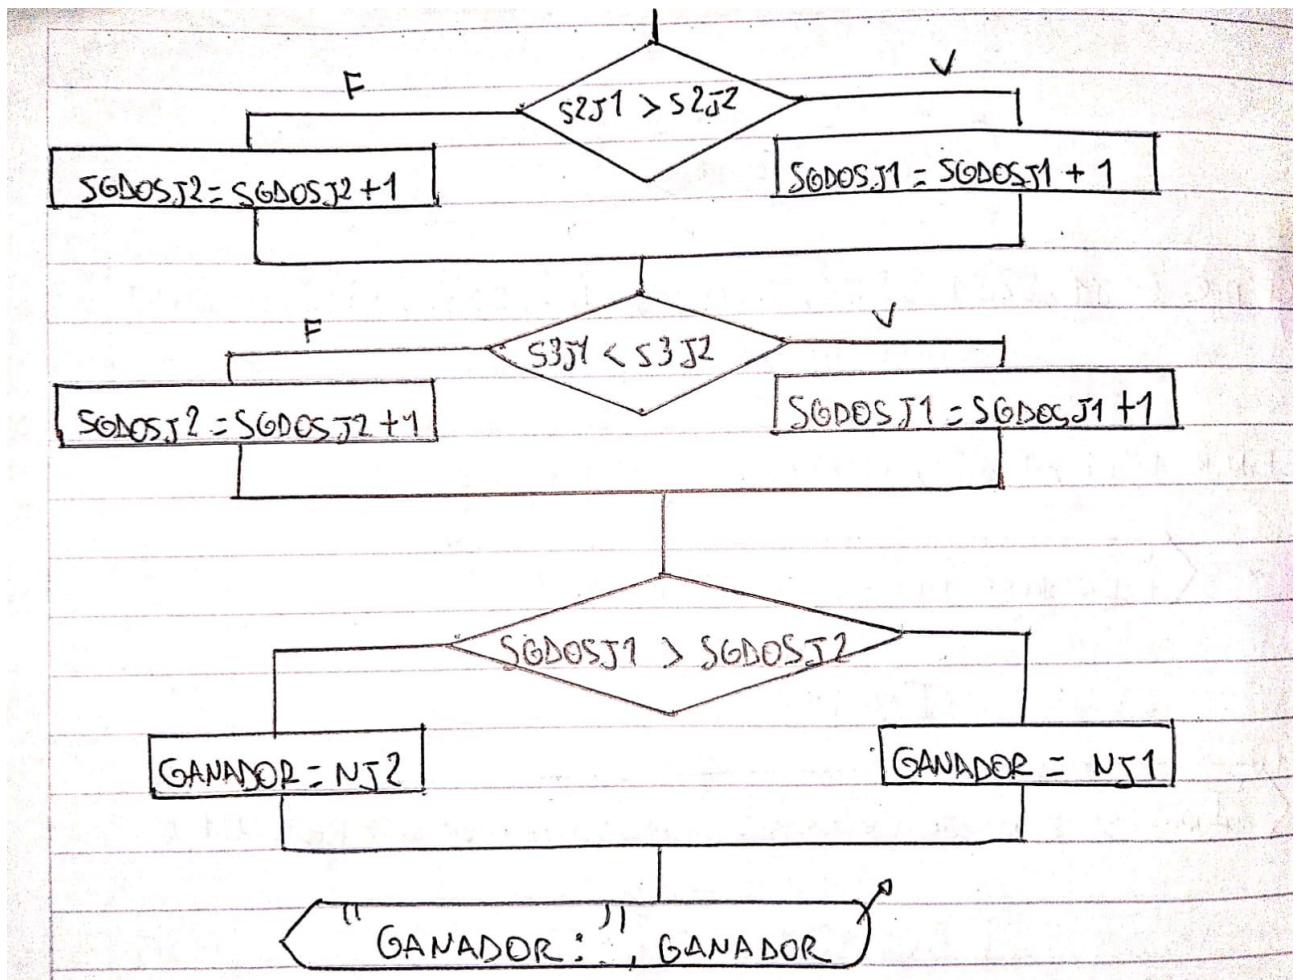 F
V
S2J1 > S2J2
SGDOSJ2 = SGDOSJ2 + 1
SGDOSJ1 = SGDOSJ1 + 1
F
V
S3J1 < S3J2
SGDOSJ2 = SGDOSJ2 + 1
SGDOSJ1 = SGDOSJ1 + 1
SGDOSJ1 > SGDOSJ2
GANADOR = NJ2
GANADOR = NJ1
"GANADOR: ", GANADOR